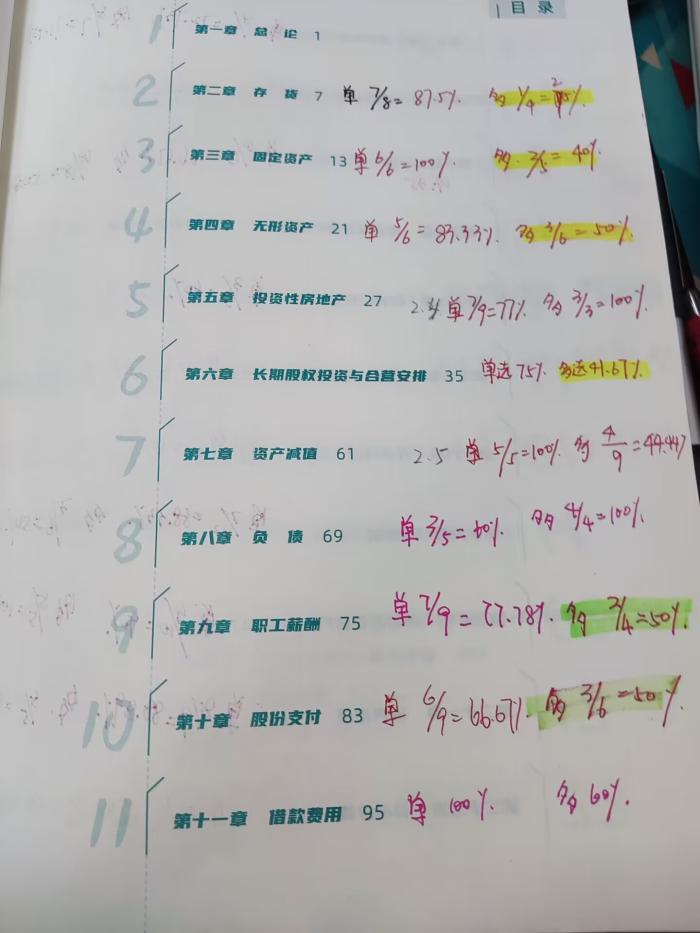 目录
1 第一章 总论 1
2 第二章 存货 7 单 7/8= 87.5% 多 1/4=25%
3 第三章 固定资产 13 单 6/6=100% 多 2/5=40%
4 第四章 无形资产 21 单 5/6=83.33% 多 3/6=50%
5 第五章 投资性房地产 27 单 7/9=77% 多 3/3=100%
6 第六章 长期股权投资与合营安排 35 单选75% 多选41.67%
7 第七章 资产减值 61 2.5 单 5/5=100% 多 4/9=44.44%
8 第八章 负债 69 单 3/5=60% 多 4/4=100%
9 第九章 职工薪酬 75 单 7/9=77.78% 多 2/4=50%
10 第十章 股份支付 83 单 6/9=66.67% 多 3/6=50%
11 第十一章 借款费用 95 单 100% 多 60%